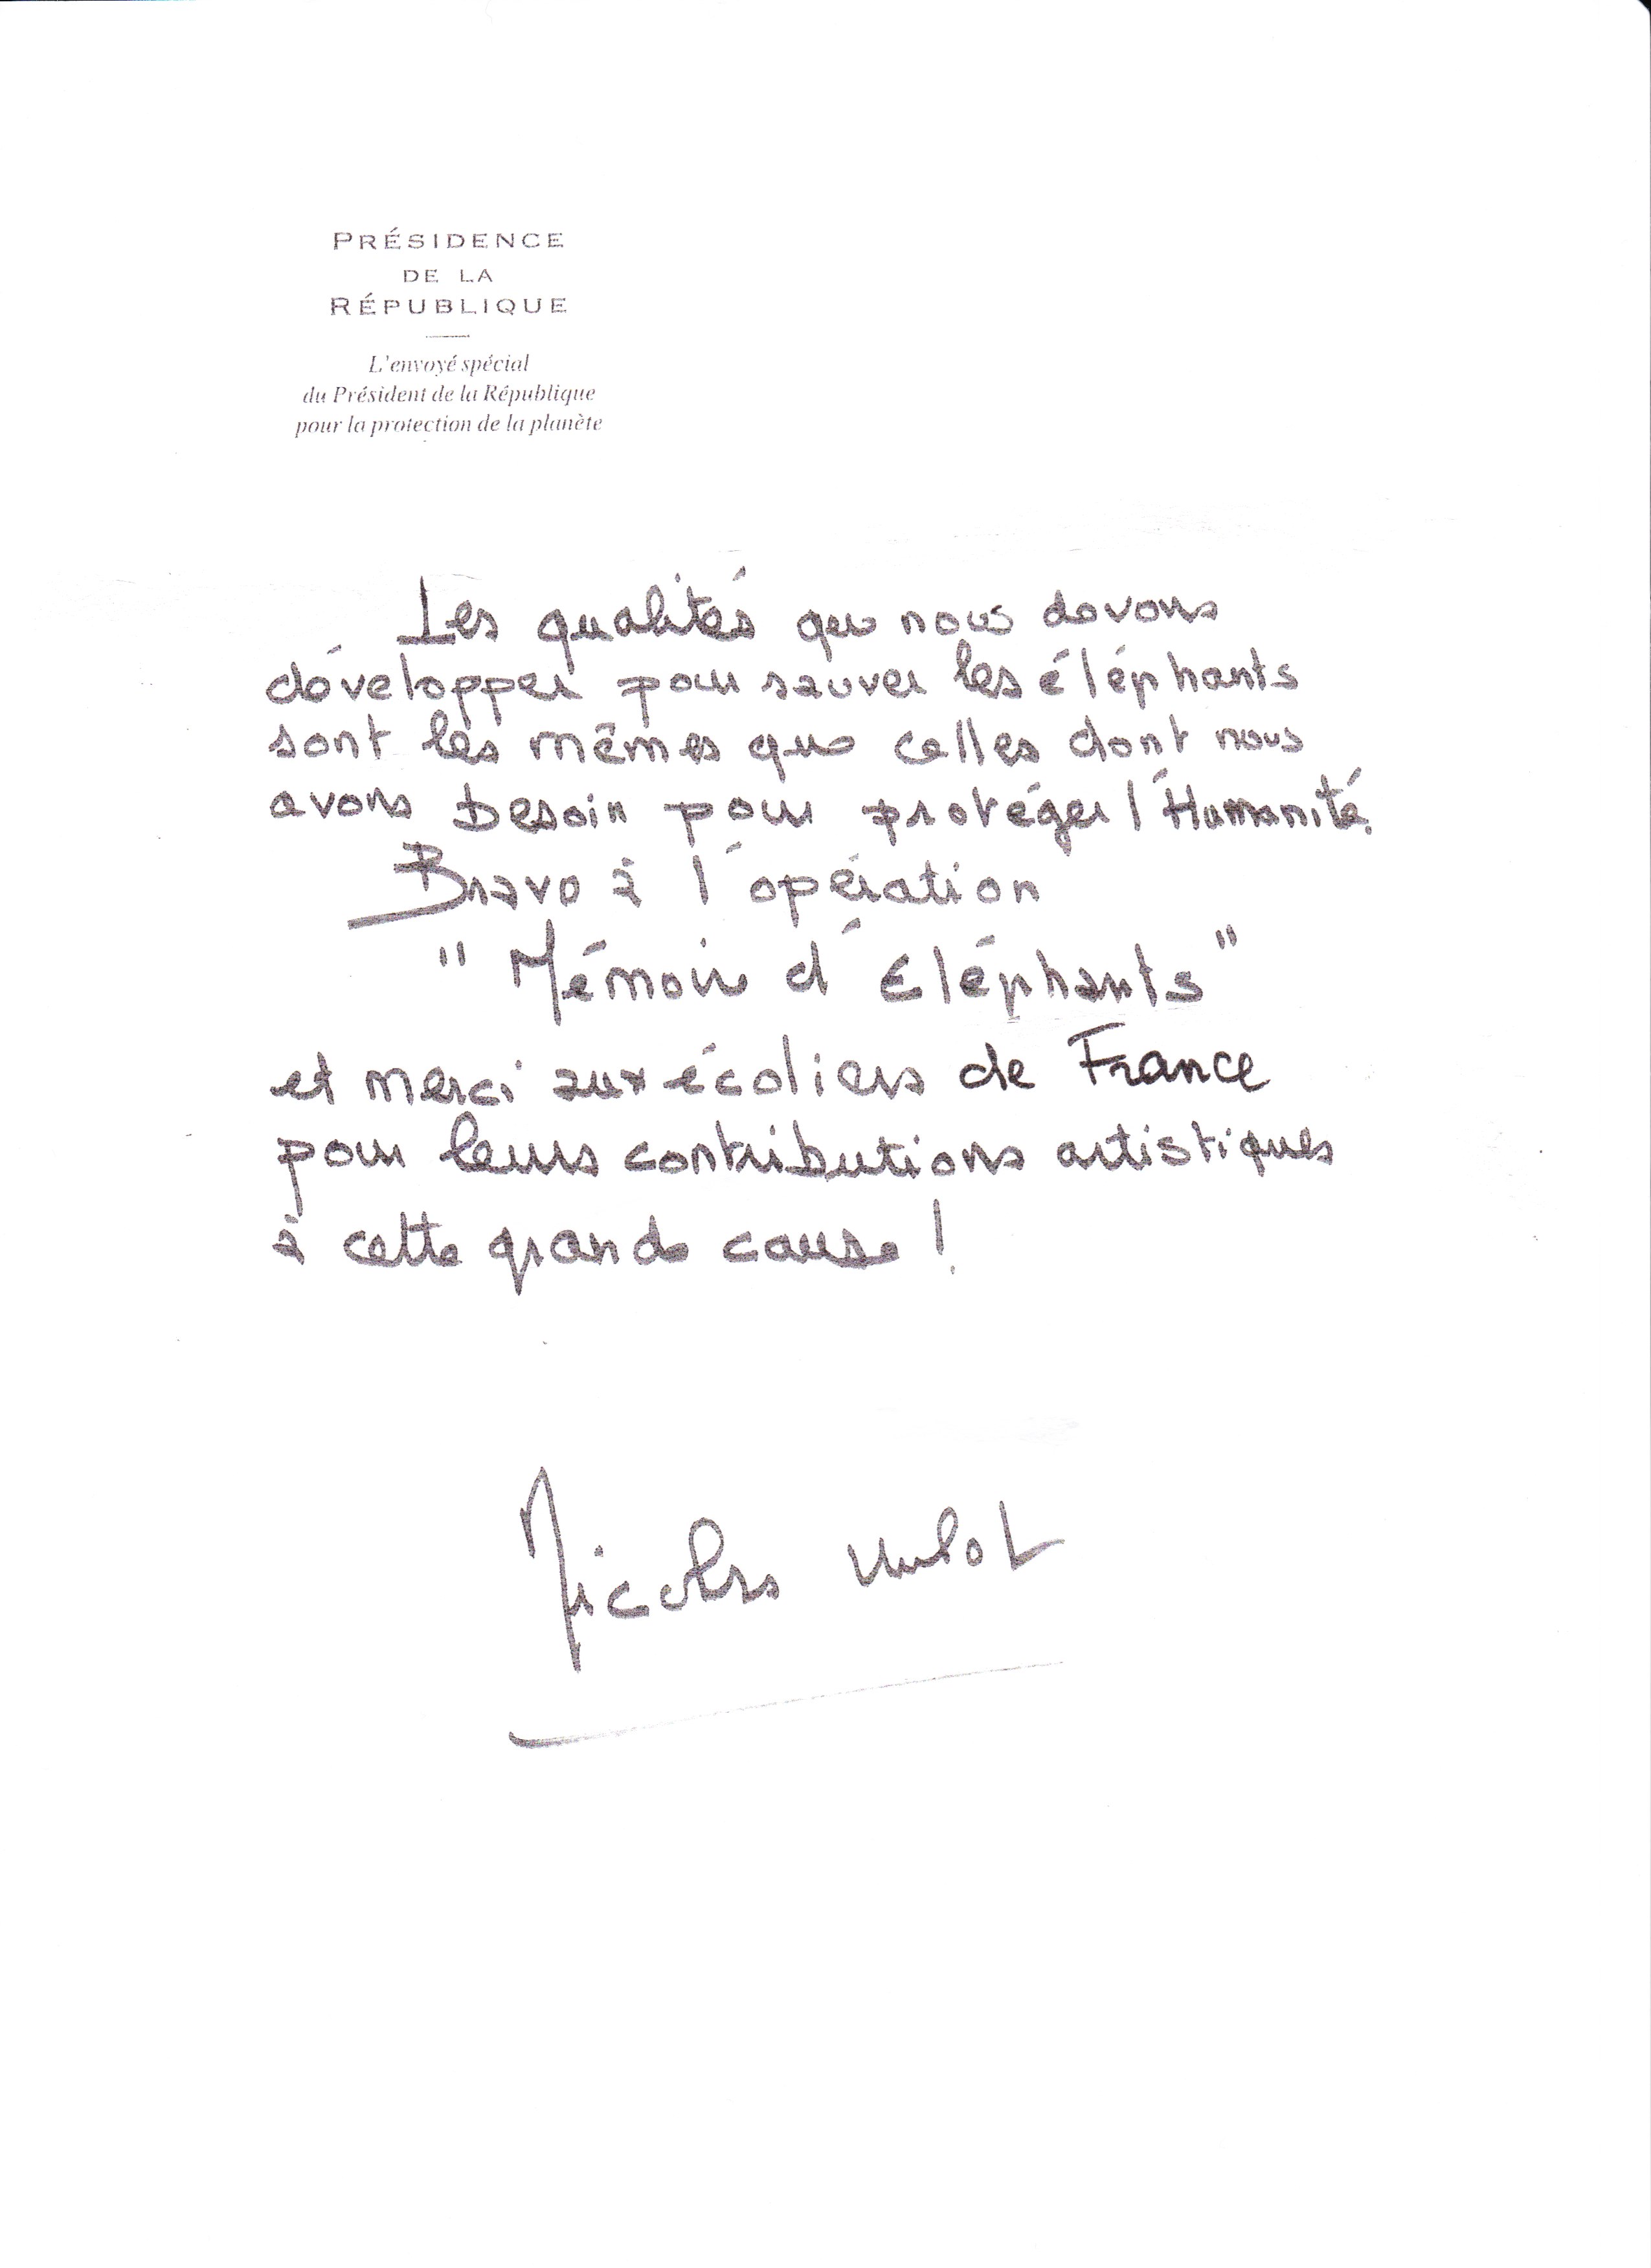 PRÉSIDENCE
DE LA
RÉPUBLIQUE
L'envoyé spécial
du Président de la République
pour la protection de la planète
Les qualités que nous devons
développer pour sauver les éléphants
sont les mêmes que celles dont nous
avons besoin pour protéger l'Humanité.
Bravo à l'opération
"Mémoire d'Eléphants"
et merci aux écoliers de France
pour leurs contributions artistiques
à cette grande cause !
Nicolas Hulot